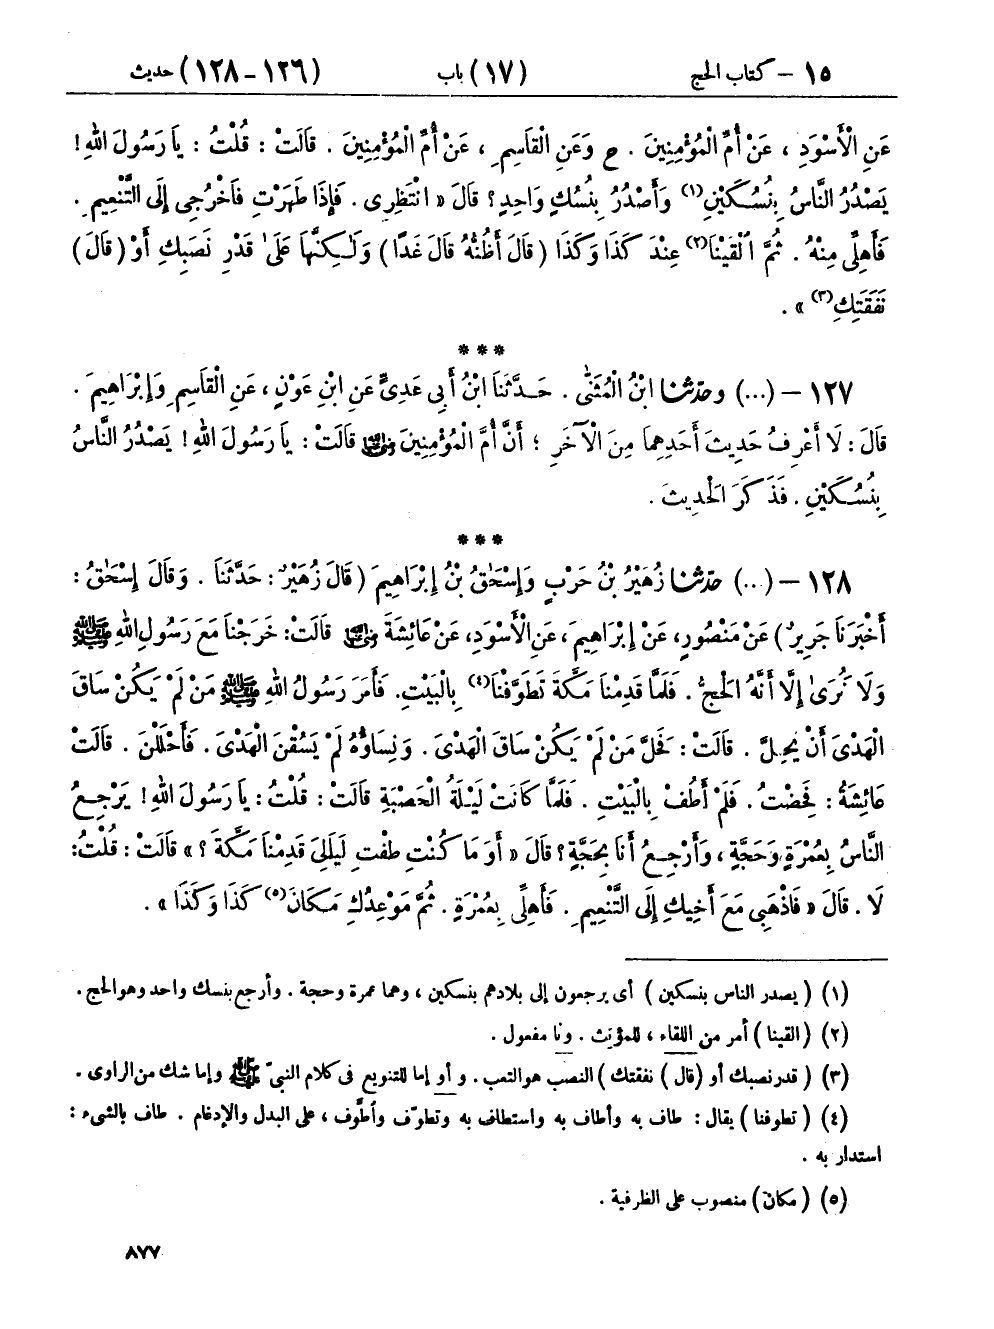 ١٥ – كتاب الحج (١٧) باب (١٢٦ – ١٢٨) حديث
عَنِ الْأَسْوَدِ ، عَنْ أُمِّ الْمُؤْمِنِينَ . ح وَعَنِ الْقَاسِمِ ، عَنْ أُمِّ الْمُؤْمِنِينَ . قَالَتْ : قُلْتُ : يَا رَسُولَ اللهِ !
يَصْدُرُ النَّاسُ بِنُسُكَيْنِ(١) وَأَصْدُرُ بِنُسُكٍ وَاحِدٍ ؟ قَالَ « انْتَظِرِى . فَإِذَا طَهَرْتِ فَاخْرُجِى إِلَى التَّنْعِيمِ .
فَأَهِلِّى مِنْهُ . ثُمَّ الْقَيْنَا(٢) عِنْدَ كَذَا وَكَذَا ( قَالَ أَظُنُّهُ قَالَ غَدًا ) وَلٰكِنَّهَا عَلَىٰ قَدْرِ نَصَبِكِ أَوْ ( قَالَ )
نَفَقَتِكِ(٣) » .
* * *
١٢٧ – (...) وحدثنا ابْنُ الْمُثَنَّىٰ . حَدَّثَنَا ابْنُ أَبِى عَدِىٍّ عَنِ ابْنِ عَوْنٍ ، عَنِ الْقَاسِمِ وَإِبْرَاهِيمَ .
قَالَ : لَا أَعْرِفُ حَدِيثَ أَحَدِهِمَا مِنَ الْآخَرِ ؛ أَنَّ أُمَّ الْمُؤْمِنِينَ رضي الله عنها قَالَتْ : يَا رَسُولَ اللهِ ! يَصْدُرُ النَّاسُ
بِنُسُكَيْنِ . فَذَكَرَ الْحَدِيثَ .
* * *
١٢٨ – (...) حدثنا زُهَيْرُ بْنُ حَرْبٍ وَإِسْحَٰقُ بْنُ إِبْرَاهِيمَ ( قَالَ زُهَيْرٌ : حَدَّثَنَا . وَقَالَ إِسْحَٰقُ :
أَخْبَرَنَا جَرِيرٌ ) عَنْ مَنْصُورٍ ، عَنْ إِبْرَاهِيمَ ، عَنِ الْأَسْوَدِ ، عَنْ عَائِشَةَ رضي الله عنها قَالَتْ : خَرَجْنَا مَعَ رَسُولِ اللهِ ﷺ
وَلَا نُرَىٰ إِلَّا أَنَّهُ الْحَجُّ . فَلَمَّا قَدِمْنَا مَكَّةَ تَطَوَّفْنَا(٤) بِالْبَيْتِ . فَأَمَرَ رَسُولُ اللهِ ﷺ مَنْ لَمْ يَكُنْ سَاقَ
الْهَدْىَ أَنْ يَحِلَّ . قَالَتْ : فَحَلَّ مَنْ لَمْ يَكُنْ سَاقَ الْهَدْىَ . وَنِسَاؤُهُ لَمْ يَسُقْنَ الْهَدْىَ . فَأَحْلَلْنَ . قَالَتْ
عَائِشَةُ : فَحِضْتُ . فَلَمْ أَطُفْ بِالْبَيْتِ . فَلَمَّا كَانَتْ لَيْلَةُ الْحَصْبَةِ قَالَتْ : قُلْتُ : يَا رَسُولَ اللهِ ! يَرْجِعُ
النَّاسُ بِعُمْرَةٍ وَحَجَّةٍ ، وَأَرْجِعُ أَنَا بِحَجَّةٍ ؟ قَالَ « أَوَ مَا كُنْتِ طُفْتِ لَيَالِىَ قَدِمْنَا مَكَّةَ ؟ » قَالَتْ : قُلْتُ :
لَا . قَالَ « فَاذْهَبِى مَعَ أَخِيكِ إِلَى التَّنْعِيمِ . فَأَهِلِّى بِعُمْرَةٍ . ثُمَّ مَوْعِدُكِ مَكَانَ(٥) كَذَا وَكَذَا » .
(١) ( يصدر الناس بنسكين ) أى يرجعون إلى بلادهم بنسكين ، وهما عمرة وحجة . وأرجع بنسك واحد وهو الحج .
(٢) ( القينا ) أمر من اللقاء ، للمؤنث . ونا مفعول .
(٣) ( قدر نصبك أو (قال) نفقتك ) النصب هو التعب . و أو إما للتنويع فى كلام النبىّ ﷺ وإما شك من الراوى .
(٤) ( تطوفنا ) يقال : طاف به وأطاف به واستطاف به وتطوّف واطّوف ، على البدل والإدغام . طاف بالشىء :
استدار به .
(٥) ( مكان ) منصوب على الظرفية .
٨٧٧